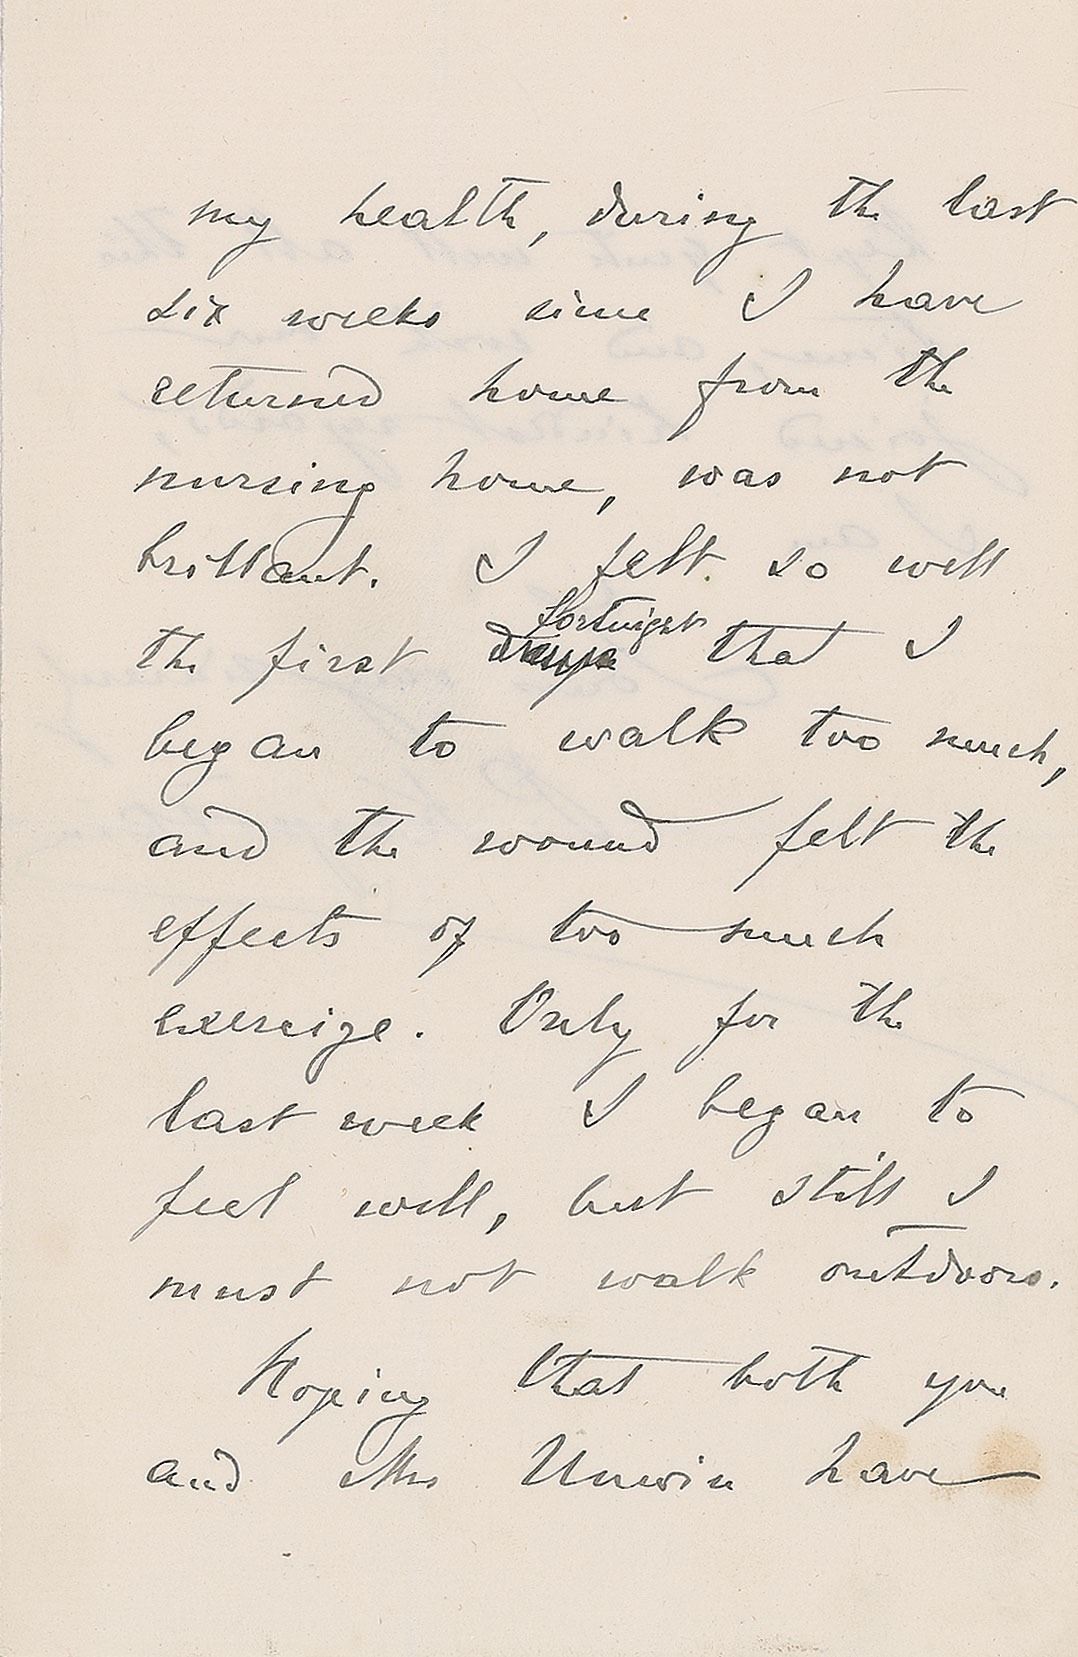 my health, during the last
six weeks since I have
returned home from the
nursing home, was not
brillant. I felt so well
fortnight
the first that I
began to walk too much,
and the wound felt the
effects of too much
exercize. Only for the
last week I began to
feel well, but still I
must not walk outdoors.
Hoping that both you
and Mrs Unwin have